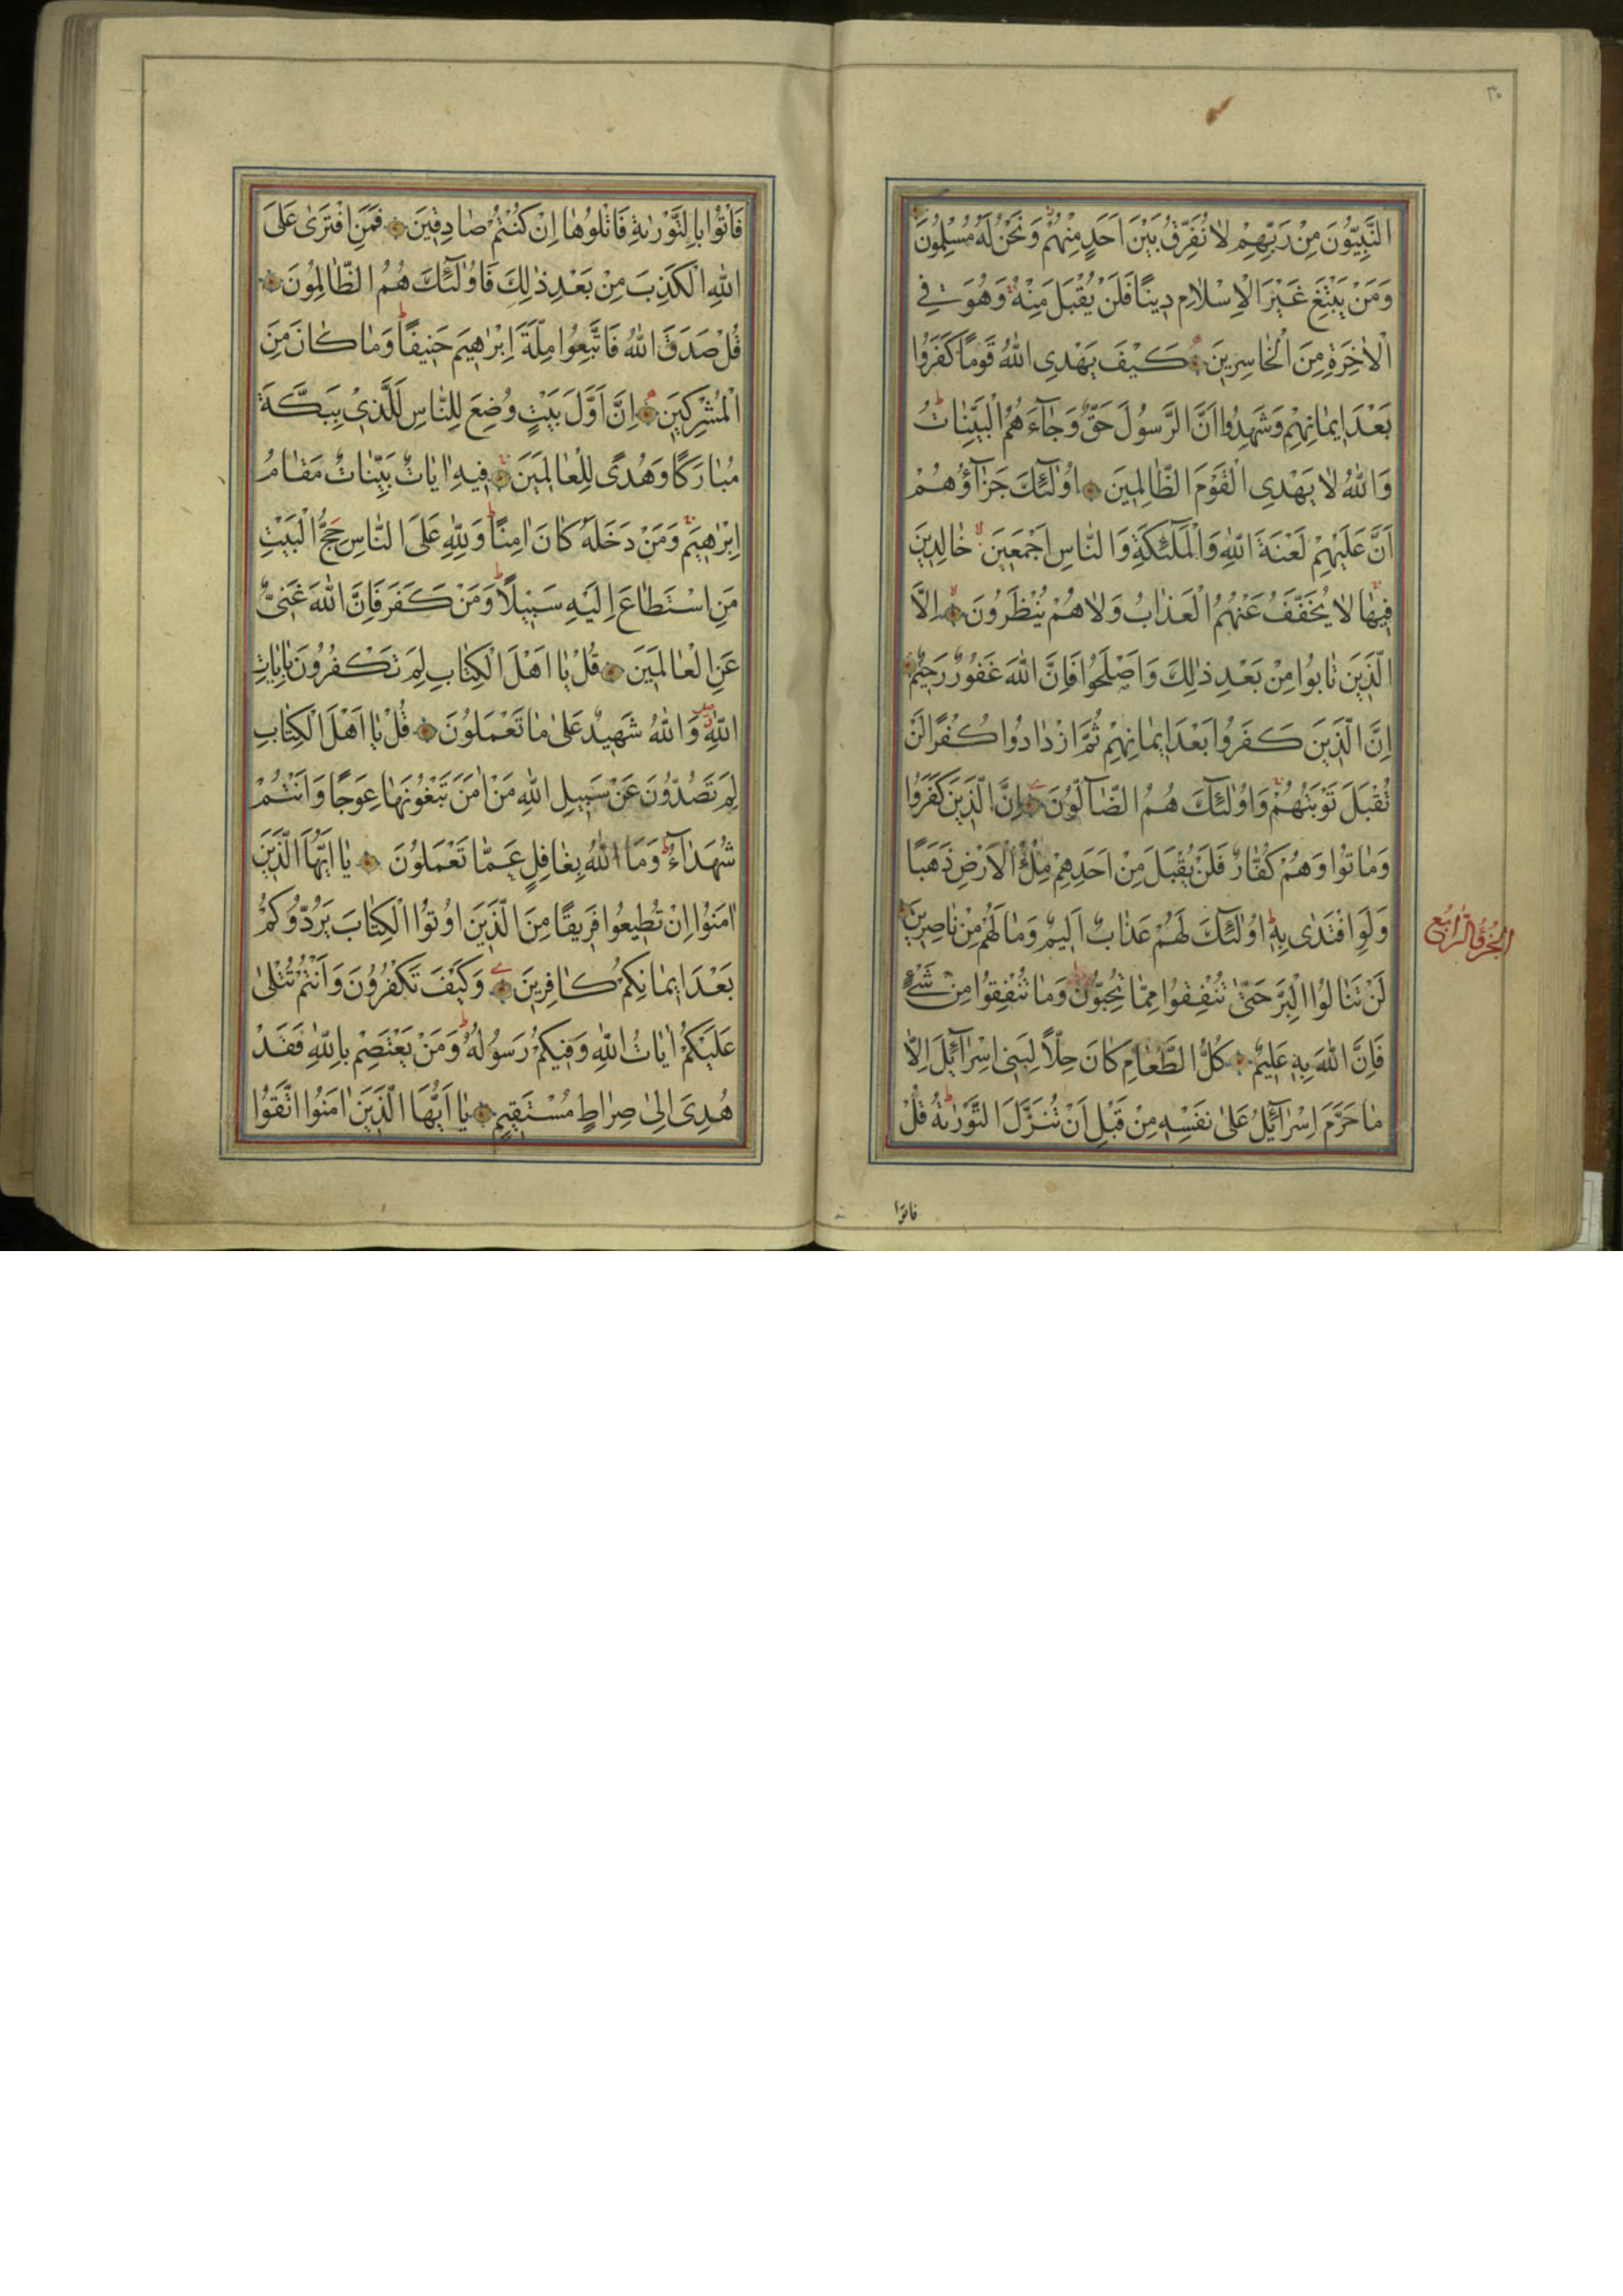 ٣٠
النَّبِيُّونَ مِنْ رَبِّهِمْ لَا نُفَرِّقُ بَيْنَ اَحَدٍ مِنْهُمْ وَنَحْنُ لَهُ مُسْلِمُونَ
وَمَنْ يَبْتَغِ غَيْرَ الْاِسْلَامِ دِينًا فَلَنْ يُقْبَلَ مِنْهُ وَهُوَ فِي
الْاٰخِرَةِ مِنَ الْخَاسِرِينَ كَيْفَ يَهْدِى اللّٰهُ قَوْمًا كَفَرُوا
بَعْدَ اِيمَانِهِمْ وَشَهِدُوا اَنَّ الرَّسُولَ حَقٌّ وَجَآءَهُمُ الْبَيِّنَاتُ
وَاللّٰهُ لَا يَهْدِى الْقَوْمَ الظَّالِمِينَ اُولٰٓئِكَ جَزَآؤُهُمْ
اَنَّ عَلَيْهِمْ لَعْنَةَ اللّٰهِ وَالْمَلٰٓئِكَةِ وَالنَّاسِ اَجْمَعِينَ خَالِدِينَ
فِيهَا لَا يُخَفَّفُ عَنْهُمُ الْعَذَابُ وَلَا هُمْ يُنْظَرُونَ اِلَّا
الَّذِينَ تَابُوا مِنْ بَعْدِ ذٰلِكَ وَاَصْلَحُوا فَاِنَّ اللّٰهَ غَفُورٌ رَحِيمٌ
اِنَّ الَّذِينَ كَفَرُوا بَعْدَ اِيمَانِهِمْ ثُمَّ ازْدَادُوا كُفْرًا لَنْ
تُقْبَلَ تَوْبَتُهُمْ وَاُولٰٓئِكَ هُمُ الضَّآلُّونَ اِنَّ الَّذِينَ كَفَرُوا
وَمَاتُوا وَهُمْ كُفَّارٌ فَلَنْ يُقْبَلَ مِنْ اَحَدِهِمْ مِلْؤُ الْاَرْضِ ذَهَبًا
وَلَوِ افْتَدٰى بِهِ اُولٰٓئِكَ لَهُمْ عَذَابٌ اَلِيمٌ وَمَا لَهُمْ مِنْ نَاصِرِينَ
الجزؤ الرابع
لَنْ تَنَالُوا الْبِرَّ حَتّٰى تُنْفِقُوا مِمَّا تُحِبُّونَ وَمَا تُنْفِقُوا مِنْ شَىْءٍ
فَاِنَّ اللّٰهَ بِهِ عَلِيمٌ كُلُّ الطَّعَامِ كَانَ حِلًّا لِبَنِى اِسْرَآئِلَ اِلَّا
مَا حَرَّمَ اِسْرَآئِلُ عَلٰى نَفْسِهِ مِنْ قَبْلِ اَنْ تُنَزَّلَ التَّوْرٰيةُ قُلْ
فاتوا
فَاْتُوا بِالتَّوْرٰيةِ فَاتْلُوهَا اِنْ كُنْتُمْ صَادِقِينَ فَمَنِ افْتَرٰى عَلَى
اللّٰهِ الْكَذِبَ مِنْ بَعْدِ ذٰلِكَ فَاُولٰٓئِكَ هُمُ الظَّالِمُونَ
قُلْ صَدَقَ اللّٰهُ فَاتَّبِعُوا مِلَّةَ اِبْرٰهِيمَ حَنِيفًا وَمَا كَانَ مِنَ
الْمُشْرِكِينَ اِنَّ اَوَّلَ بَيْتٍ وُضِعَ لِلنَّاسِ لَلَّذِى بِبَكَّةَ
مُبَارَكًا وَهُدًى لِلْعَالَمِينَ فِيهِ اٰيَاتٌ بَيِّنَاتٌ مَقَامُ
اِبْرٰهِيمَ وَمَنْ دَخَلَهُ كَانَ اٰمِنًا وَلِلّٰهِ عَلَى النَّاسِ حِجُّ الْبَيْتِ
مَنِ اسْتَطَاعَ اِلَيْهِ سَبِيلًا وَمَنْ كَفَرَ فَاِنَّ اللّٰهَ غَنِىٌّ
عَنِ الْعَالَمِينَ قُلْ يَا اَهْلَ الْكِتَابِ لِمَ تَكْفُرُونَ بِاٰيَاتِ
اللّٰهِ وَاللّٰهُ شَهِيدٌ عَلٰى مَا تَعْمَلُونَ قُلْ يَا اَهْلَ الْكِتَابِ
لِمَ تَصُدُّونَ عَنْ سَبِيلِ اللّٰهِ مَنْ اٰمَنَ تَبْغُونَهَا عِوَجًا وَاَنْتُمْ
شُهَدَآءُ وَمَا اللّٰهُ بِغَافِلٍ عَمَّا تَعْمَلُونَ يَا اَيُّهَا الَّذِينَ
اٰمَنُوا اِنْ تُطِيعُوا فَرِيقًا مِنَ الَّذِينَ اُوتُوا الْكِتَابَ يَرُدُّوكُمْ
بَعْدَ اِيمَانِكُمْ كَافِرِينَ وَكَيْفَ تَكْفُرُونَ وَاَنْتُمْ تُتْلٰى
عَلَيْكُمْ اٰيَاتُ اللّٰهِ وَفِيكُمْ رَسُولُهُ وَمَنْ يَعْتَصِمْ بِاللّٰهِ فَقَدْ
هُدِىَ اِلٰى صِرَاطٍ مُسْتَقِيمٍ يَا اَيُّهَا الَّذِينَ اٰمَنُوا اتَّقُوا